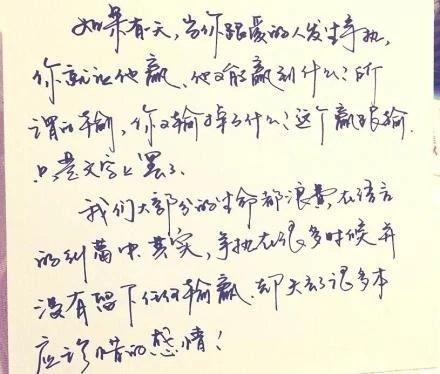 如果有一天，当你跟爱的人发生争执，
你就让他赢，他又能赢到什么？所
谓的输，你又输掉了什么？这个赢跟输，
只是文字上罢了。
我们大部分的生命都浪费在语言
的纠葛中。其实，争执在很多时候并
没有留下任何输赢，却失去了很多本
应珍惜的感情！